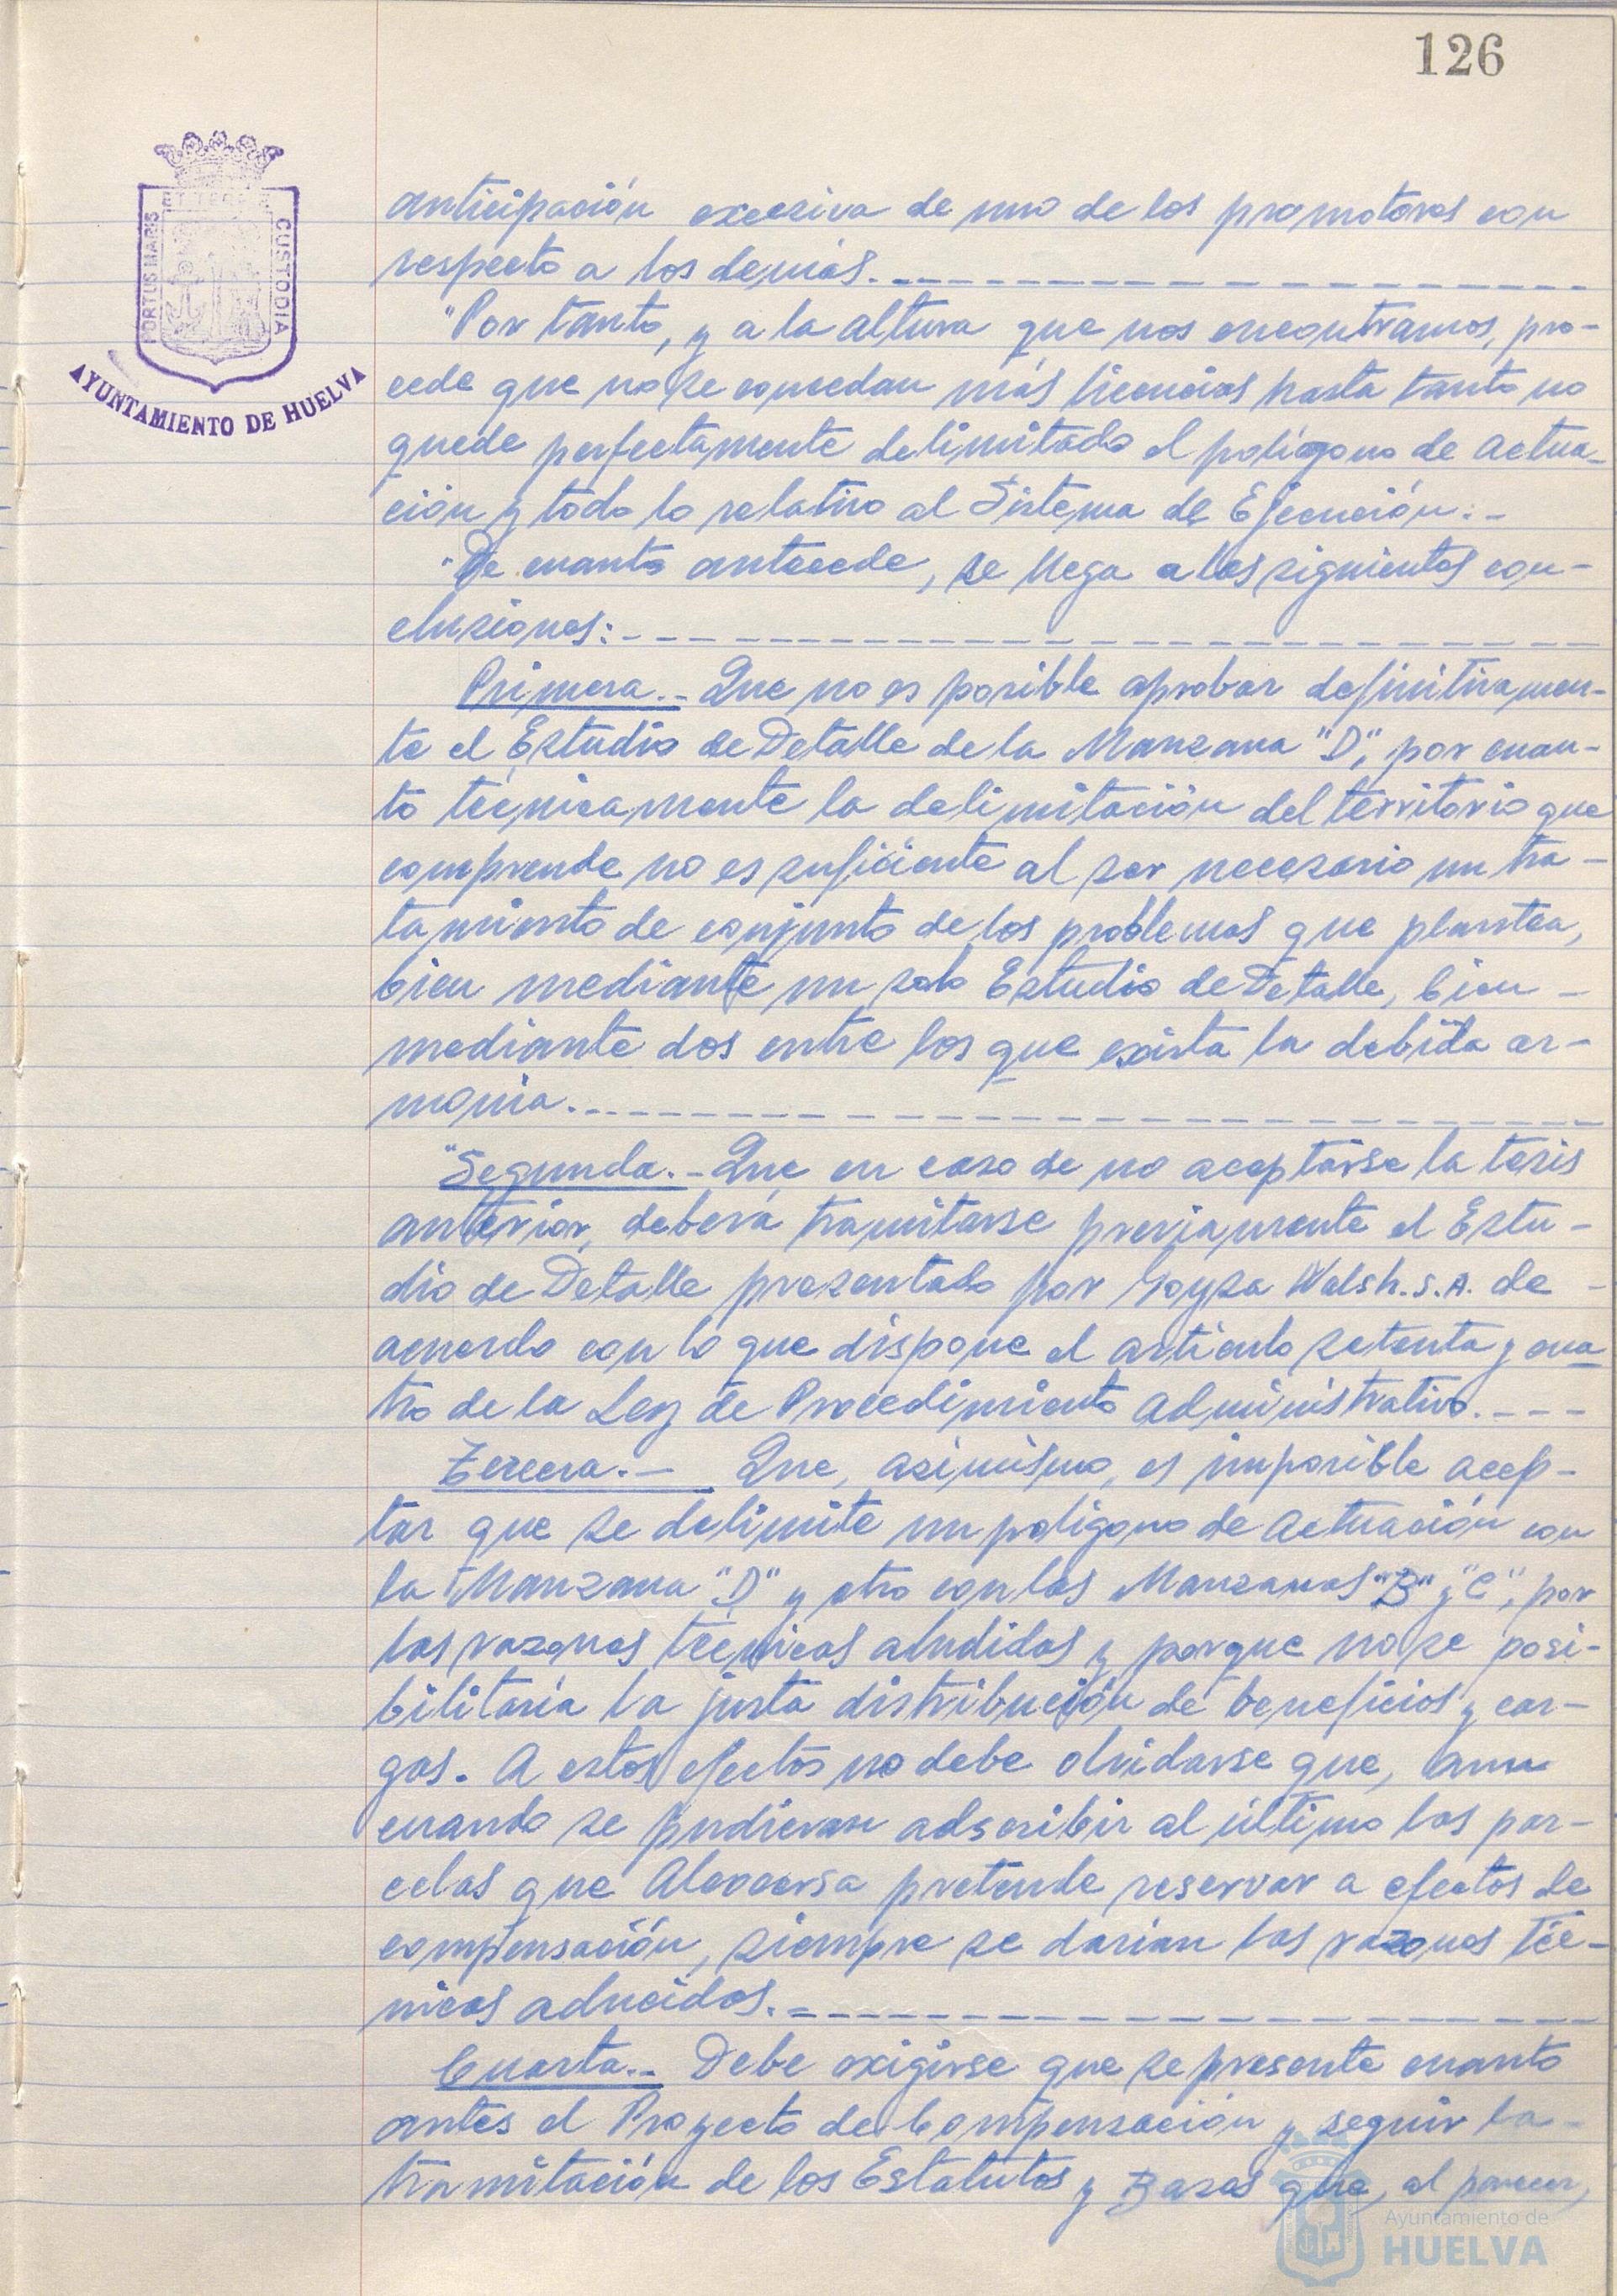 126
ET TERRE
PORTUS MARIS
CUSTODIA
AYUNTAMIENTO DE HUELVA
anticipación excesiva de uno de los promotores con
respecto a los demás.
"Por tanto, y a la altura que nos encontramos, pro-
cede que no se concedan más licencias hasta tanto no
quede perfectamente delimitado el polígono de actua-
ción y todo lo relativo al Sistema de Ejecución.-
"De cuanto antecede, se llega a las siguientes con-
clusiones:
Primera.- Que no es posible aprobar definitivamen-
te el Estudio de Detalle de la Manzana "D", por cuan-
to técnicamente la delimitación del territorio que
comprende no es suficiente al ser necesario un tra-
tamiento de conjunto de los problemas que plantea,
bien mediante un solo Estudio de Detalle, bien -
mediante dos entre los que exista la debida ar-
monia.
"Segunda.- Que en caso de no aceptarse la tesis
anterior, deberá tramitarse previamente el Estu-
dio de Detalle presentado por Goysa Walsh. S.A. de -
acuerdo con lo que dispone el artículo setenta y cua
tro de la Ley de Procedimiento Administrativo.
Tercera.- Que, asimismo, es imposible acep-
tar que se delimite un poligono de actuación con
la Manzana "D" y otro con las Manzanas "B" y "C", por
las razones técnicas aludidas y porque no se posi-
bilitaría la justa distribución de beneficios y car-
gas. A estos efectos no debe olvidarse que, aun
cuando se pudieran adscribir al último las par-
celas que pretende reservar a efectos de
compensación, siempre se darían las razones téc-
nicas aducidas.
Cuarta.- Debe exigirse que se presente cuanto
antes el Proyecto de Compensación y seguir la-
tramitación de los Estatutos y Bases que, al parecer,
Ayuntamiento de
HUELVA